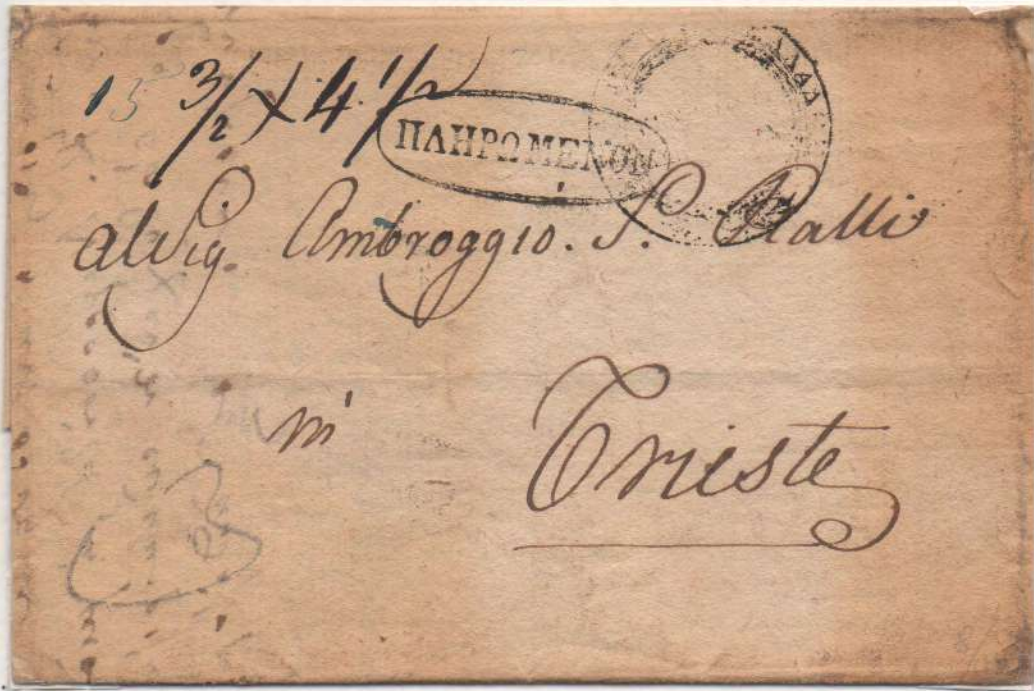 15 3/2 x 4 1/2
ΠΛΗΡΩΜΕΝΟΝ
al Sig. Ambroggio. S. Ralli
in Trieste